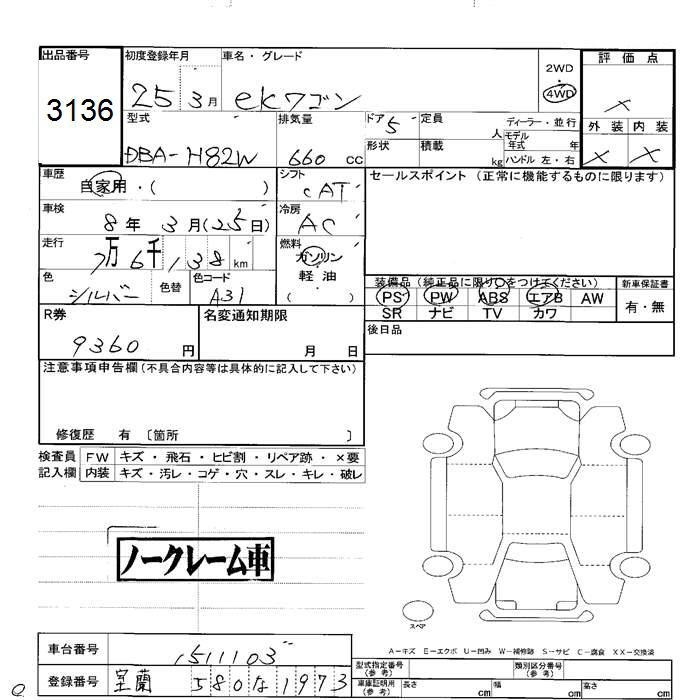 出品番号 初度登録年月 車名・グレード 評価点
3136 25 3月 ekワゴン 2WD・4WD ×
型式 排気量 ドア 5 定員 人 ディーラー・並行 外装 内装
DBA-H82W 660 cc 形状 積載 kg モデル年式 年 ハンドル 左・右 × ×
車歴 自家用・( ) シフト CAT セールスポイント (正常に機能するものに限ります)
車検 8年 3月(25日) 冷房 AC
走行 7万 6千 138 km 燃料 ガソリン
色 シルバー 色替 色コード A31 軽油 ( )
装備品 (純正品に限り○をつけてください) 新車保証書
PS PW ABS エアB AW 有・無
SR ナビ TV カワ
R券 9360 円 名変通知期限 月 日 後日品
注意事項申告欄(不具合内容等は具体的に記入して下さい)
修復歴 有 〔箇所 〕
検査員 FW キズ・飛石・ヒビ割・リペア跡・×要
記入欄 内装 キズ・汚レ・コゲ・穴・スレ・キレ・破レ
ノークレーム車
スペア
A－キズ E－エクボ U－凹み W－補修跡 S－サビ C－腐食 XX－交換済
車台番号 1511103
型式指定番号(参考) 類別区分番号(参考)
登録番号 室蘭 580 な 1973
車庫証明用(参考) 長さ cm 幅 cm 高さ cm